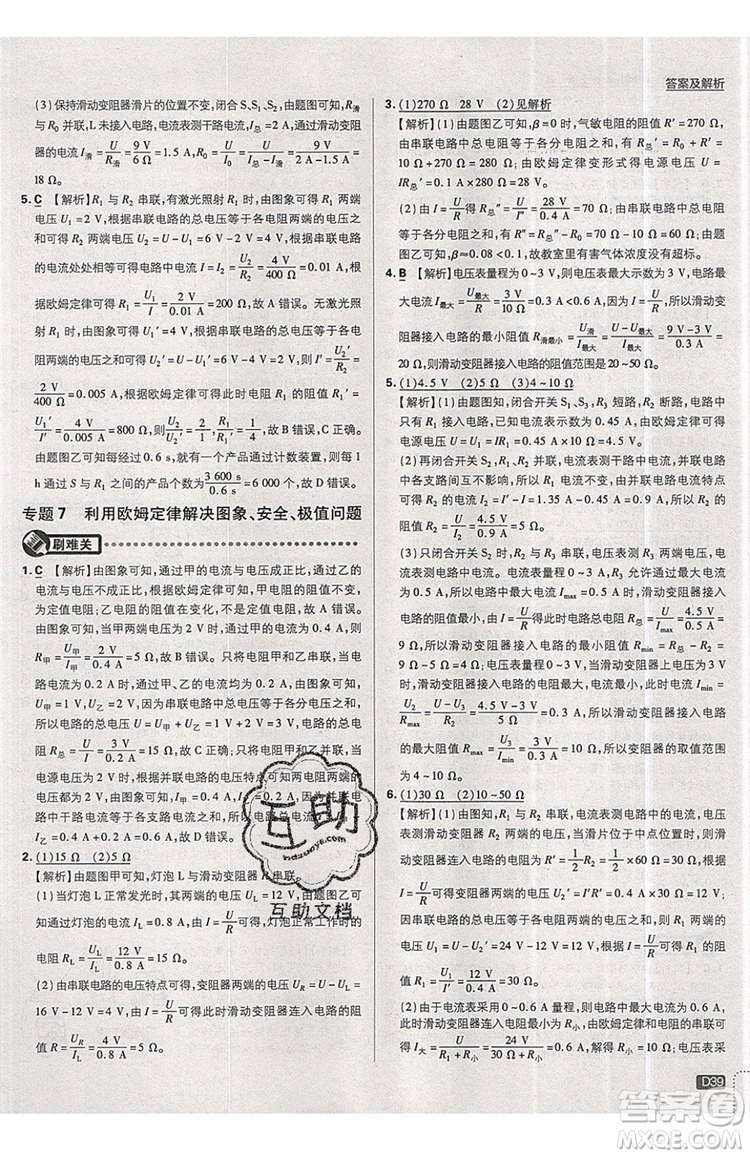 答案及解析
(3) 保持滑动变阻器滑片的位置不变,闭合 S、S₁、S₂,由题图可知 R₀ 与 R滑并联,L 未接入电路,电流表测干路电流,I总 = 2 A,通过滑动变阻
器的电流 I滑 = U/R滑 = 9 V/6 Ω = 1.5 A,R₀ = U/I₀ = U/(I总-I滑) = 9 V/(2 A-1.5 A) =
18 Ω。
5. C 【解析】R₁ 与 R₂ 串联,有激光照射 R₁ 时,由题图乙可知 R₁ 两端
电压 U₁ = 2 V,根据串联电路的总电压等于各电阻两端的电压之和
可得 R₂ 两端电压 U₂ = U-U₁ = 6 V-2 V = 4 V,根据串联电路
的电流处处相等可得电路中电流 I = U₂/R₂ = 4 V/400 Ω = 0.01 A,由
欧姆定律可得 R₁ = U₁/I = 2 V/0.01 A = 200 Ω,故 A 错误。无激光照射
R₁ 时,由题图乙可知 U₁′ = 4 V,根据串联电路的总电压等于各电
阻两端的电压之和可得 R₂ 两端的电压为 2 V,则 I′ = U₂′/R₂ =
2 V/400 Ω = 0.005 A,由欧姆定律可得此时电阻 R₁ 的阻值 R₁′ =
U₁′/I′ = 4 V/0.005 A = 800 Ω,所以 U₂/U₁ = 2, R₁/R₁′ = 1/4,故 B、D 错误。
由题图乙可知,每隔 0.6 s,就有一个产品通过计数装置,则每
小时通过计数装置的产品个数为 3 600 s/0.6 s = 6 000 个,故 C 正确。
专题 7 利用欧姆定律解决图象、安全、极值问题
刷难关
1. C 【解析】由图象可知,通过甲的电流与电压成正比,通过乙的电
流与电压不成正比,由欧姆定律可知,甲电阻的阻值不变,为
定值电阻;乙电阻的阻值在变化,不是定值电阻,故 A 错误。由
图象可知,当甲两端电压为 2 V 时,通过甲的电流为 0.4 A,则
R甲 = U甲/I甲 = 2 V/0.4 A = 5 Ω,故 B 错误。只将电阻甲和乙串联,当
电流为 0.2 A 时,通过两电阻的电流均为 0.2 A,由图象可知
U甲 = 1 V,U乙 = 2 V,由于串联电路的总电压等于各分电压之和,
所以电路的总电压 U = U甲+U乙 = 1 V+2 V = 3 V,此时电路
的总电阻 R总 = U/I = 3 V/0.2 A = 15 Ω,故 C 正确。只将甲和乙并联在
电压为 2 V 的电源两端,由并联电路的电压特点可知两电阻两端的电
压均为 2 V
I乙 = 0.4 A+0.2 A = 0.6 A,故 D 错误。
2. (1)15 Ω (2)5 Ω
【解析】由图甲可知,灯泡 L 与滑动变阻器 R 串联。
(1) 当灯泡 L 正常发光时,其两端的电压为 12 V,由题图乙可
知通过灯泡的电流 I_L = 0.8 A,由 I = U/R 可得,灯泡正常工作时的
电阻 R_L = U_L/I_L = 12 V/0.8 A = 15 Ω。
(2) 由串联电路的电压特点可得,变阻器两端电压 U_R = U-U_L =
16 V-12 V = 4 V,由 I = U/R 可得,此时滑动变阻器连入电路的电
阻值 R = U_R/I_L = 4 V/0.8 A = 5 Ω。
3. (1)270 Ω 28 V (2)见解析
【解析】(1) 由题图乙可知,β=0 时,气敏电阻的阻值 R′ = 270 Ω,
由串联电路中总电阻等于各分电阻之和可得 R总′ = R₀+R′ =
10 Ω+270 Ω = 280 Ω,由欧姆定律变形式得电源电压 U =
IR总′ = 0.1 A×280 Ω = 28 V。
(2) 由 I = U/R 得 R总″ = U/I″ = 28 V/0.4 A = 70 Ω,由串联电路中总电阻
等于各分电阻之和可得 R″ = R总″-R₀ = 70 Ω-10 Ω = 60 Ω,
由题图乙可知,β≈0.08<0.1,故教室里有害气体浓度没有超标。
4. B 【解析】电压表量程为 0~3 V,所以定值电阻两端的最大电压
U最大 = 3 V,则电路中的最大电流 I最大 = U最大/R = 3 V/10 Ω = 0.3 A,滑动变
阻器接入电路的最小阻值 R滑最小 = U滑/I最大 = (U-U最大)/I最大 = (9 V-3 V)/0.3 A =
20 Ω,所以滑动变阻器的阻值范围是 20~50 Ω。
5. (1)4.5 V (2)5 Ω (3)4~10 Ω
【解析】(1) 由题图知,闭合开关 S、S₁,R₂ 短路,R₃ 断路,电路中
只有 R₁,已知电流表的示数为 0.45 A,由欧姆定律可得
电源电压 U = IR₁ = 0.45 A×10 Ω = 4.5 V。
(2) 再闭合开关 S₂,R₁、R₂ 并联,电流表测干路中电流,并联电路
中各支路间互不影响,
的阻值 R₂ = U/I₂ = 4.5 V/0.9 A = 5 Ω。
(3) 只闭合开关 S,R₂、R₃ 串联,电压表测 R₃ 两端电压,电
流表测电路中电流。电流表量程为 0~3 A,R₂ 允许通过最大电流
为 0.5 A,所以电路中最大电流 I_max = 0.5 A,此时滑动变阻器接入
电路的阻值最小,由 I = U/R 得此时电路总电阻 R总 = U/I_max = 4.5 V/0.5 A =
9 Ω,所以滑动变阻器接入电路的最小阻值 R最小 = R总-R₂ =
9 Ω-5 Ω = 4 Ω;由题意可知,电压表最大示数为 3 V 时,滑动
变阻器接入电路的电阻最大,电流最小,此时电路中电流 I_min =
U₂/R₂ = (U-U₃)/R₂ = (4.5 V-3 V)/5 Ω = 0.3 A,所以滑动变阻器接入电路
的最大阻值 R最大 = U₃/I_min = 3 V/0.3 A = 10 Ω,所以滑动变阻器的取值范围
为 4~10 Ω。
6. (1)30 Ω (2)10~50 Ω
【解析】(1) 由题图可知,定值电阻 R₁ 与滑动变阻器 R₂ 串联,电压
表测滑动变阻器两端的电压,当滑片位于中点位置时,由
变阻器连入电路的阻值 R′ = 1/2 R₂ = 1/2×60 Ω = 30 Ω,
由欧姆定律可得滑动变阻器两端的电压 U₂ = I′R′ = 0.4 A×
30 Ω = 12 V,由串联电路总电压等于各电阻两端的电压之和可得 R₁ 两端
电压 U₁ = U-U₂ = 24 V-12 V = 12 V,由 I = U/R 得,定值电阻 R₁ 的阻
值 R₁ = U₁/I = 12 V/0.4 A = 30 Ω。
(2) 由于电流表采用 0~0.6 A 量程,所以通过电路的最大电流为 0.6 A,此
时滑动变阻器连入电路的电阻最小,由欧姆定律和电阻的串联可
得 I大 = U/(R₁+R小) = 24 V/(30 Ω+R小) = 0.6 A,解得 R小 = 10 Ω;电压表采
D39
互助
hdzuoye.com
互助文档
答案圈